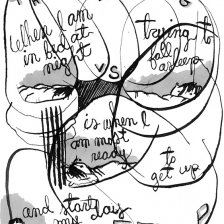 When I am
in bed at
night
vs.
trying to
fall
asleep
is when I
am most
ready
to
get up
and start
my
days